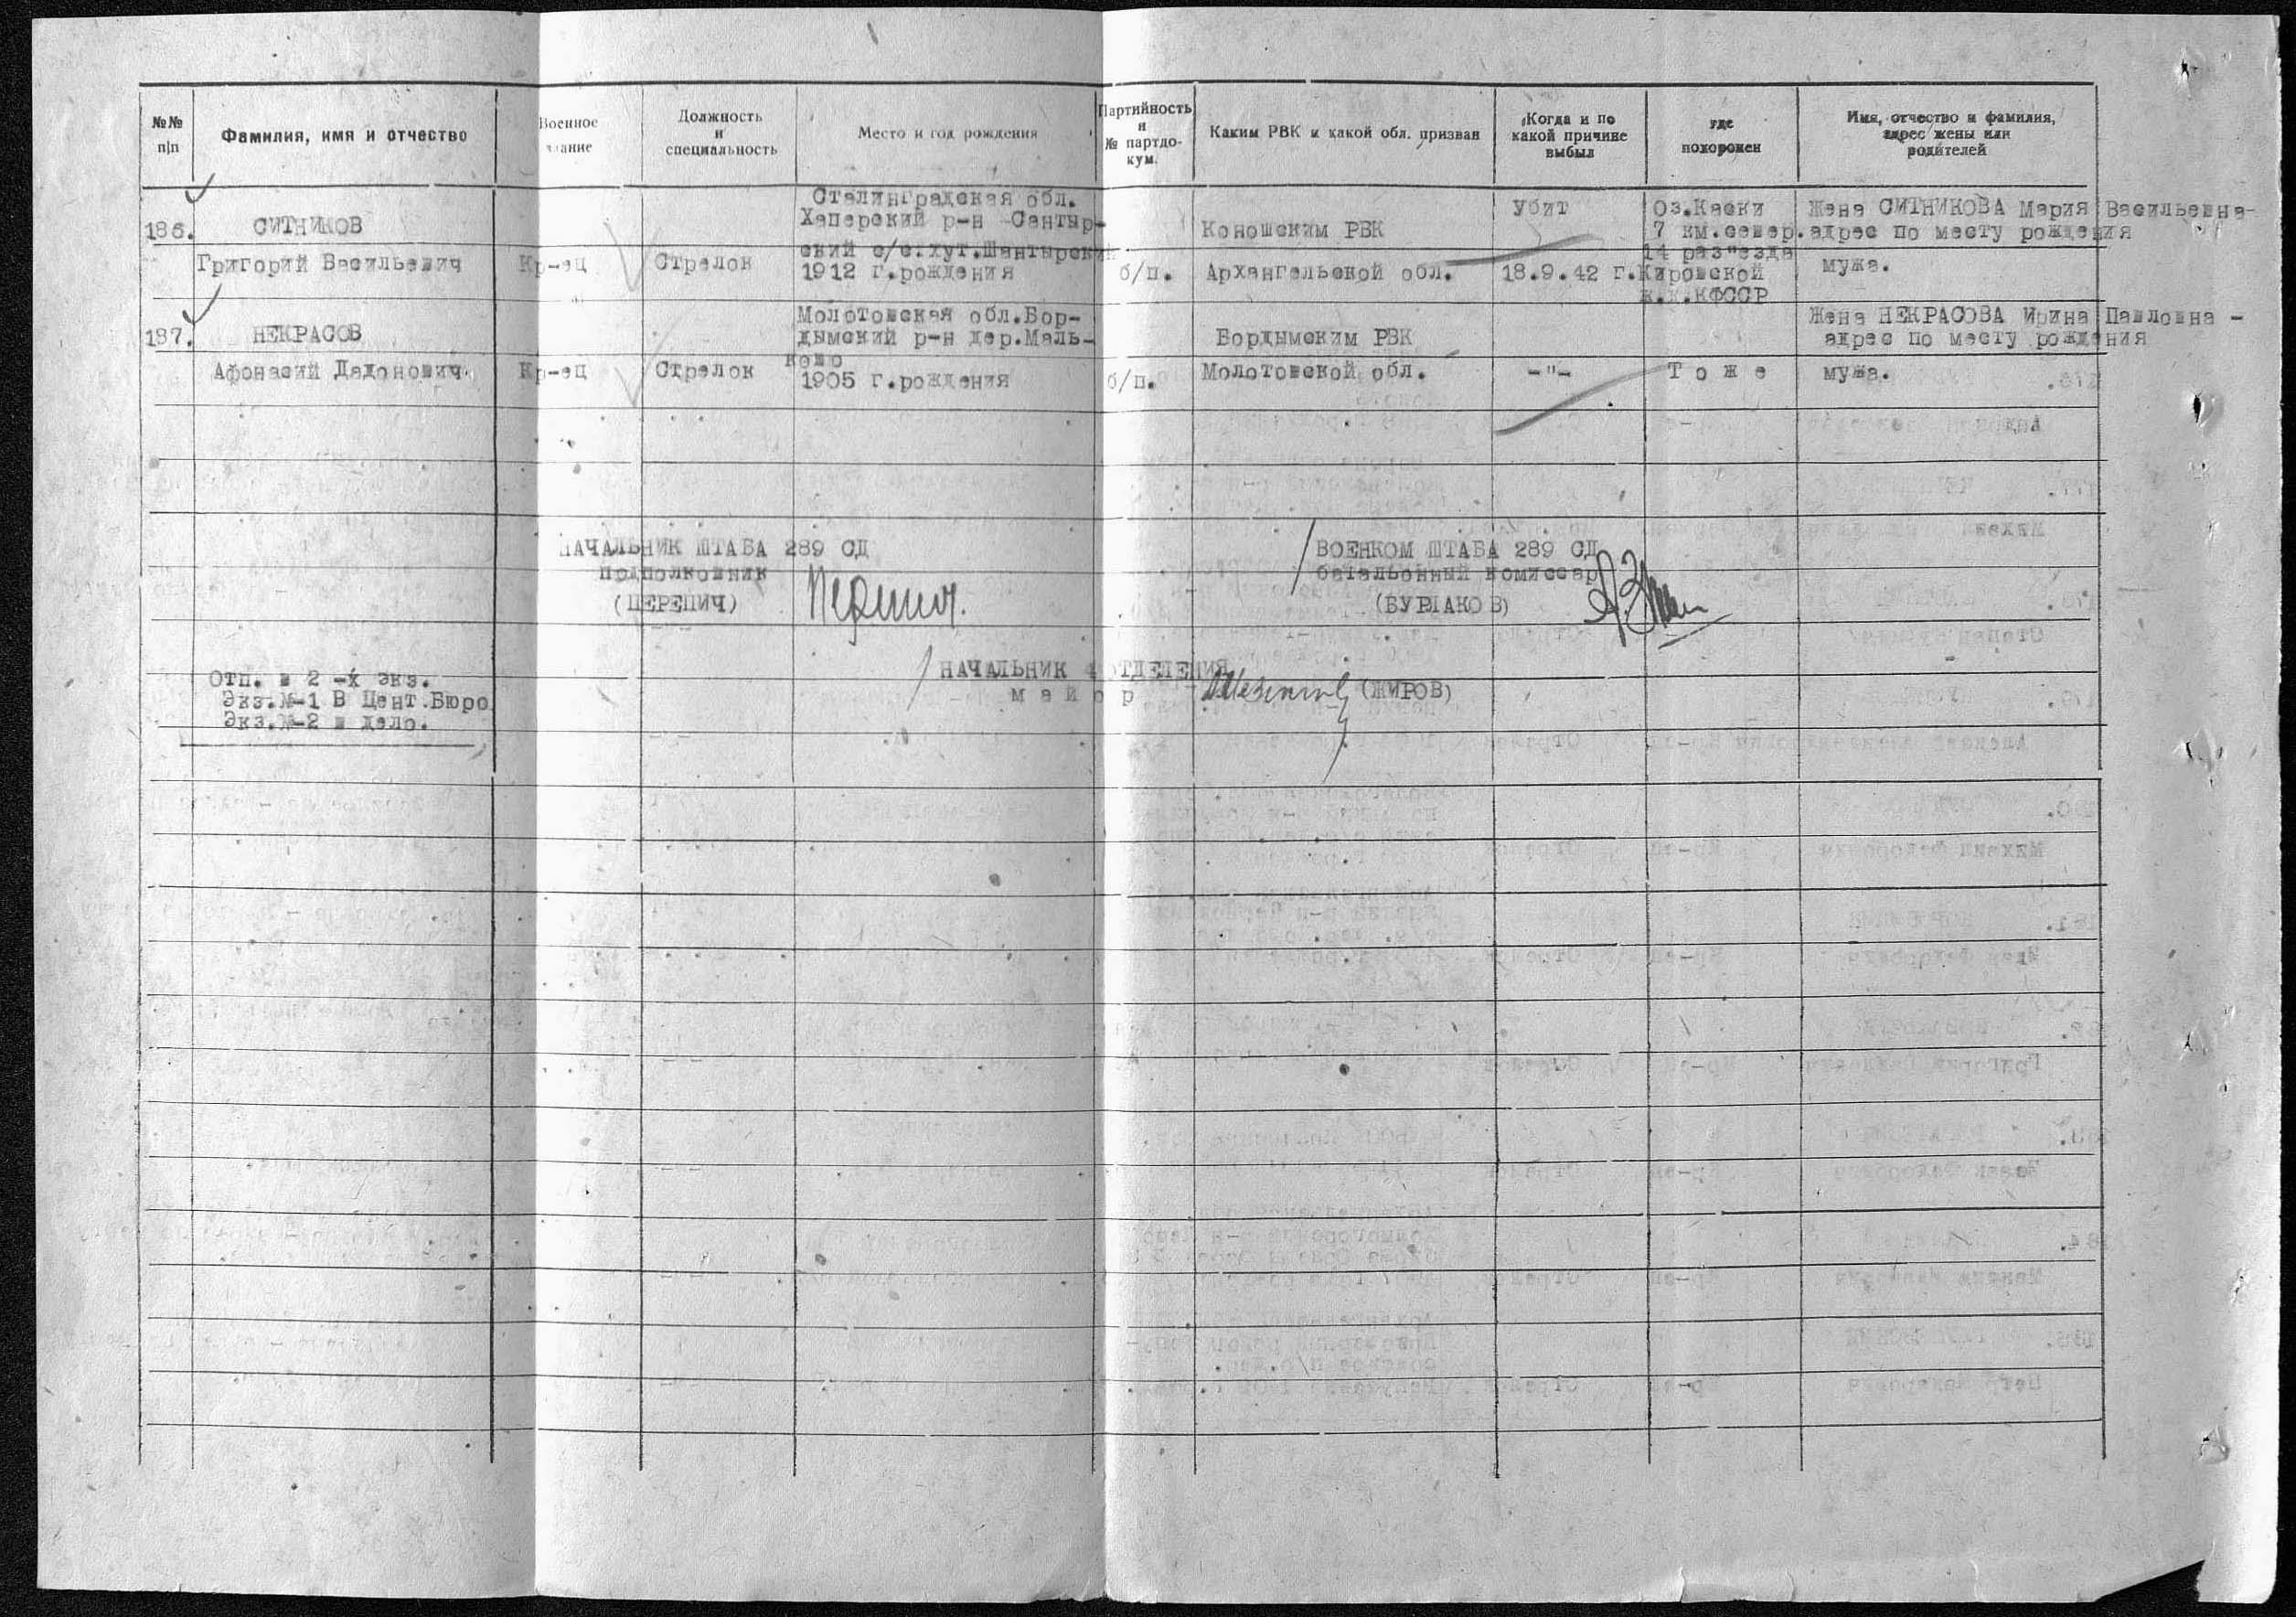 №№ п/п
Фамилия, имя и отчество
Военное звание
Должность и специальность
Место и год рождения
Партийность и № партдокум.
Каким РВК и какой обл. призван
Когда и по какой причине выбыл
где похоронен
Имя, отчество и фамилия, адрес жены или родителей
186.
СИТНИКОВ
Григорий Васильевич
Кр-ец
Стрелок
Сталинградская обл.
Хаперский р-н Сантыр-
ский с/с.хут.Шантырский
1912 г.рождения
б/п.
Коношским РВК
Архангельской обл.
Убит
18.9.42 г.
Оз.Каски
7 км.север.
14 раз"езда
Кировской
ж.д.КФССР
Жена СИТНИКОВА Мария Васильевна-
адрес по месту рождения
мужа.
187.
НЕКРАСОВ
Афонасий Дадонович
Кр-ец
Стрелок
Молотовская обл.Бор-
дымский р-н дер.Маль-
ково
1905 г.рождения
б/п.
Бордымским РВК
Молотовской обл.
-"-
Т о ж е
Жена НЕКРАСОВА Ирина Павловна -
адрес по месту рождения
мужа.
НАЧАЛЬНИК ШТАБА 289 СД
подполковник
(ЦЕРЕПИЧ)
ВОЕНКОМ ШТАБА 289 СД
батальонный комиссар
(БУРЛАКОВ)
НАЧАЛЬНИК 4 ОТДЕЛЕНИЯ
м а й о р
(ЖИРОВ)
Отп. в 2 -х экз.
Экз.№-1 В Цент.Бюро
Экз.№-2 в дело.